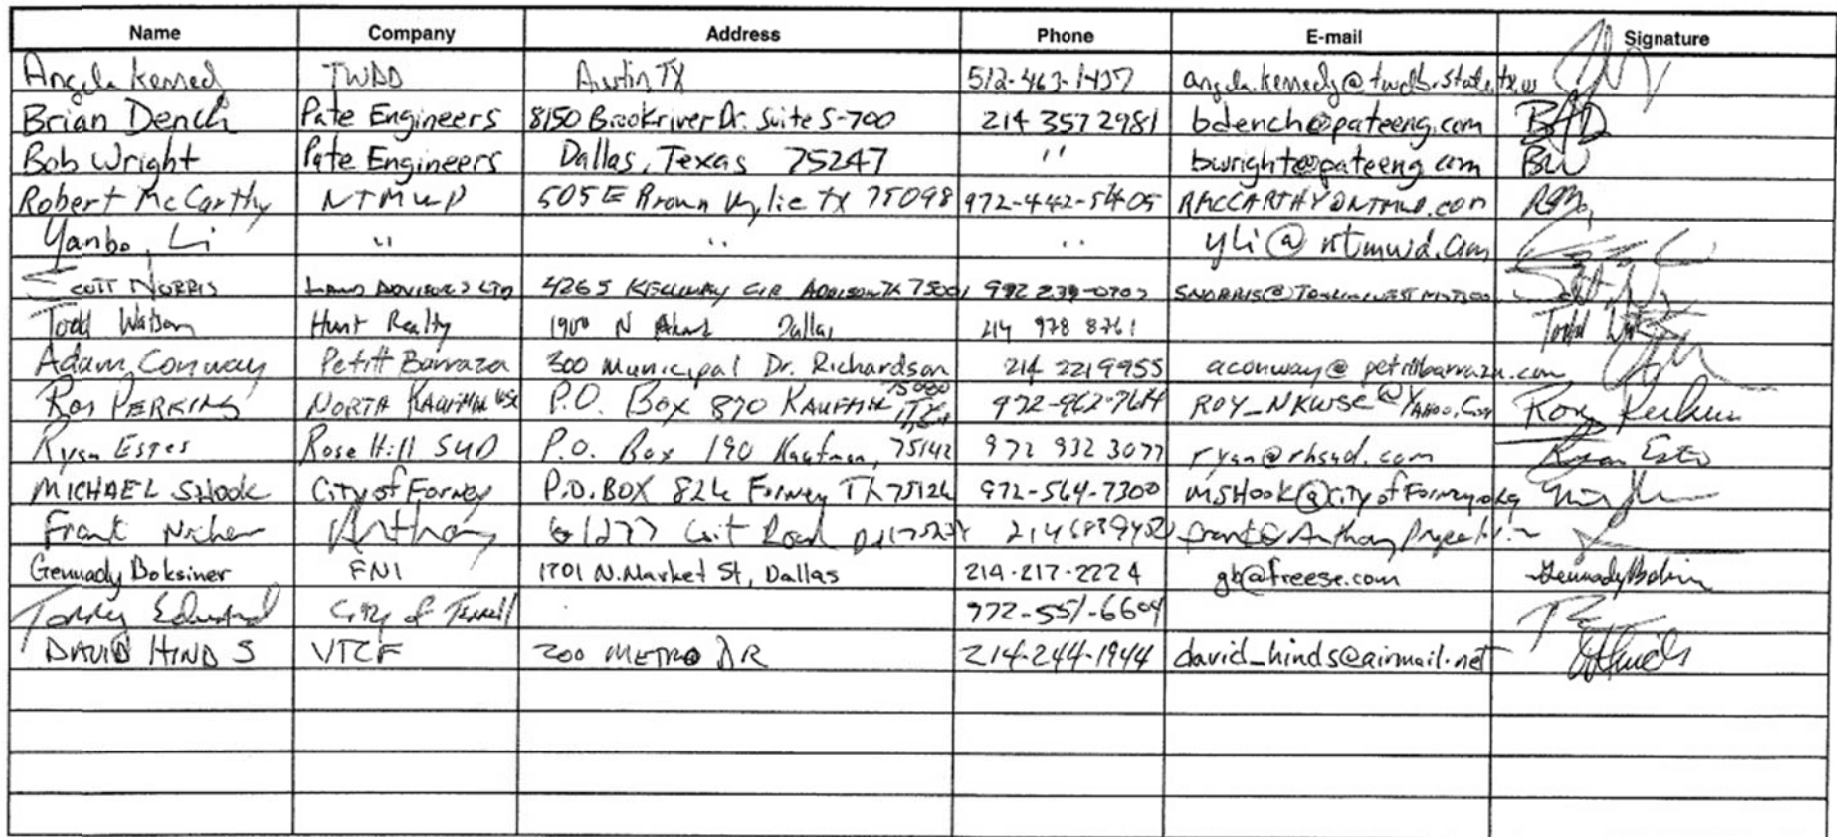 Name Company Address Phone E-mail Signature
Angela Kenned TWDD Austin TX 512-463-1437 angela.kennedy@twdb.state.tx.us
Brian Dench Pate Engineers 8150 Brookriver Dr. Suite S-700 214 357 2981 bdench@pateeng.com BAD
Bob Wright Pate Engineers Dallas, Texas 75247 " bwright@pateeng.com BW
Robert McCarthy NTMWD 505 E Brown Wylie TX 75098 972-442-5405 RMCCARTHY@NTMWD.COM
Yanbo, Li " " " yli@ntmwd.com
SCOTT NORRIS LAND ADVISORS LTD 4265 KELLWAY CIR ADDISON TX 75001
Todd Watson Hunt Realty 1900 N Akard Dallas 214 978 8761 Todd
Adam Conway Petitt Barraza 300 Municipal Dr. Richardson 214 221 9955 aconway@petittbarraza.com
Roy PERKINS NORTH KAUFMAN WSC P.O. Box 870 KAUFMAN, TX. 972-962-7614 ROY_NKWSC@YAHOO.COM Roy Perkins
Ryan ESTES Rose Hill SUD P.O. Box 190 Kaufman, 75142 972 932 3077 ryan@rhsud.com Ryan Estes
MICHAEL SHook City of Forney P.O. BOX 826 Forney TX 75126 972-564-7300 MSHook@cityofForney.org
Frank Anthony Coit Road
Gennady Boksiner FNI 1701 N. Market St, Dallas 214-217-2224 gb@freese.com Gennady Boksiner
City of Terrell 972-551-6609
DAVID HINDS VTCF 200 METRO DR 214-244-1944 david_hinds@airmail.net